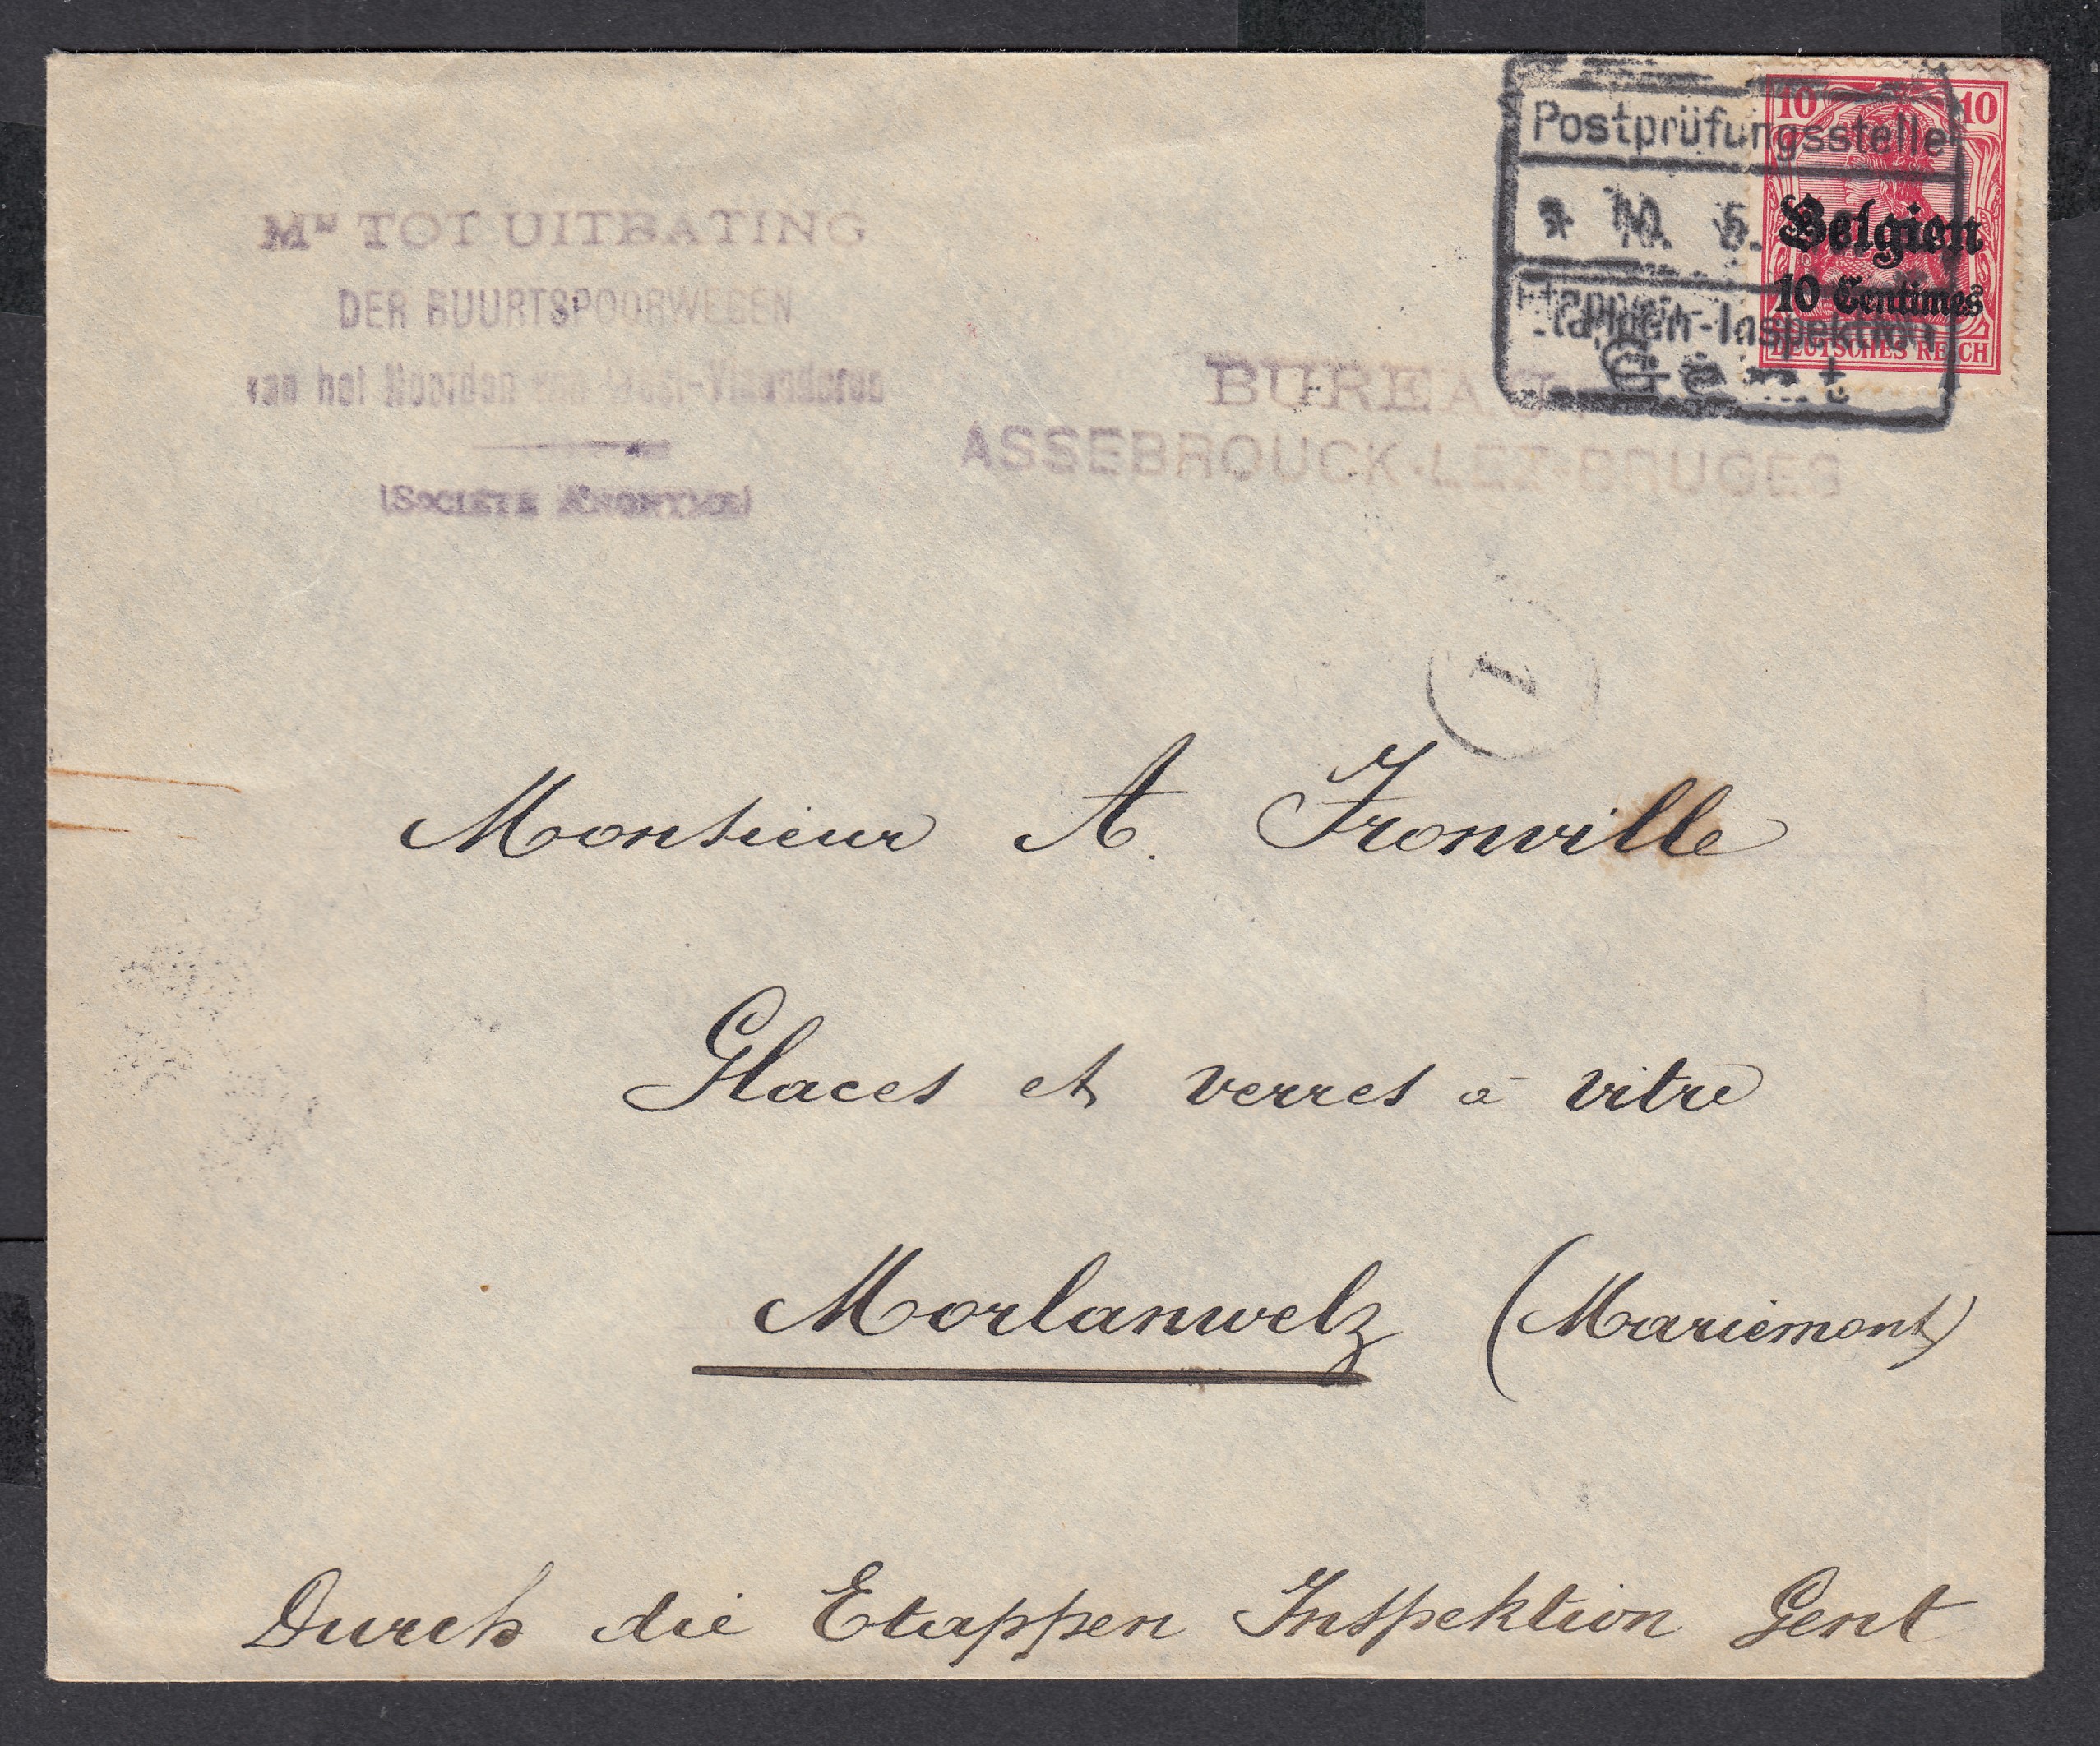 Mij TOT UITBATING
DER BUURTSPOORWEGEN
van het Noorden van West-Vlaanderen
(SOCIÉTÉ ANONYME)
BUREAU
ASSEBROUCK-LEZ-BRUGES
Postprüfungsstelle
* 10. 5.
Etappen-Inspektion
Gent
10 10
Belgien
10 Centimes
DEUTSCHES REICH
1
Monsieur A. Fronville
Glaces et verres à vitre
Morlanwelz (Mariemont)
Durch die Etappen Inspektion Gent